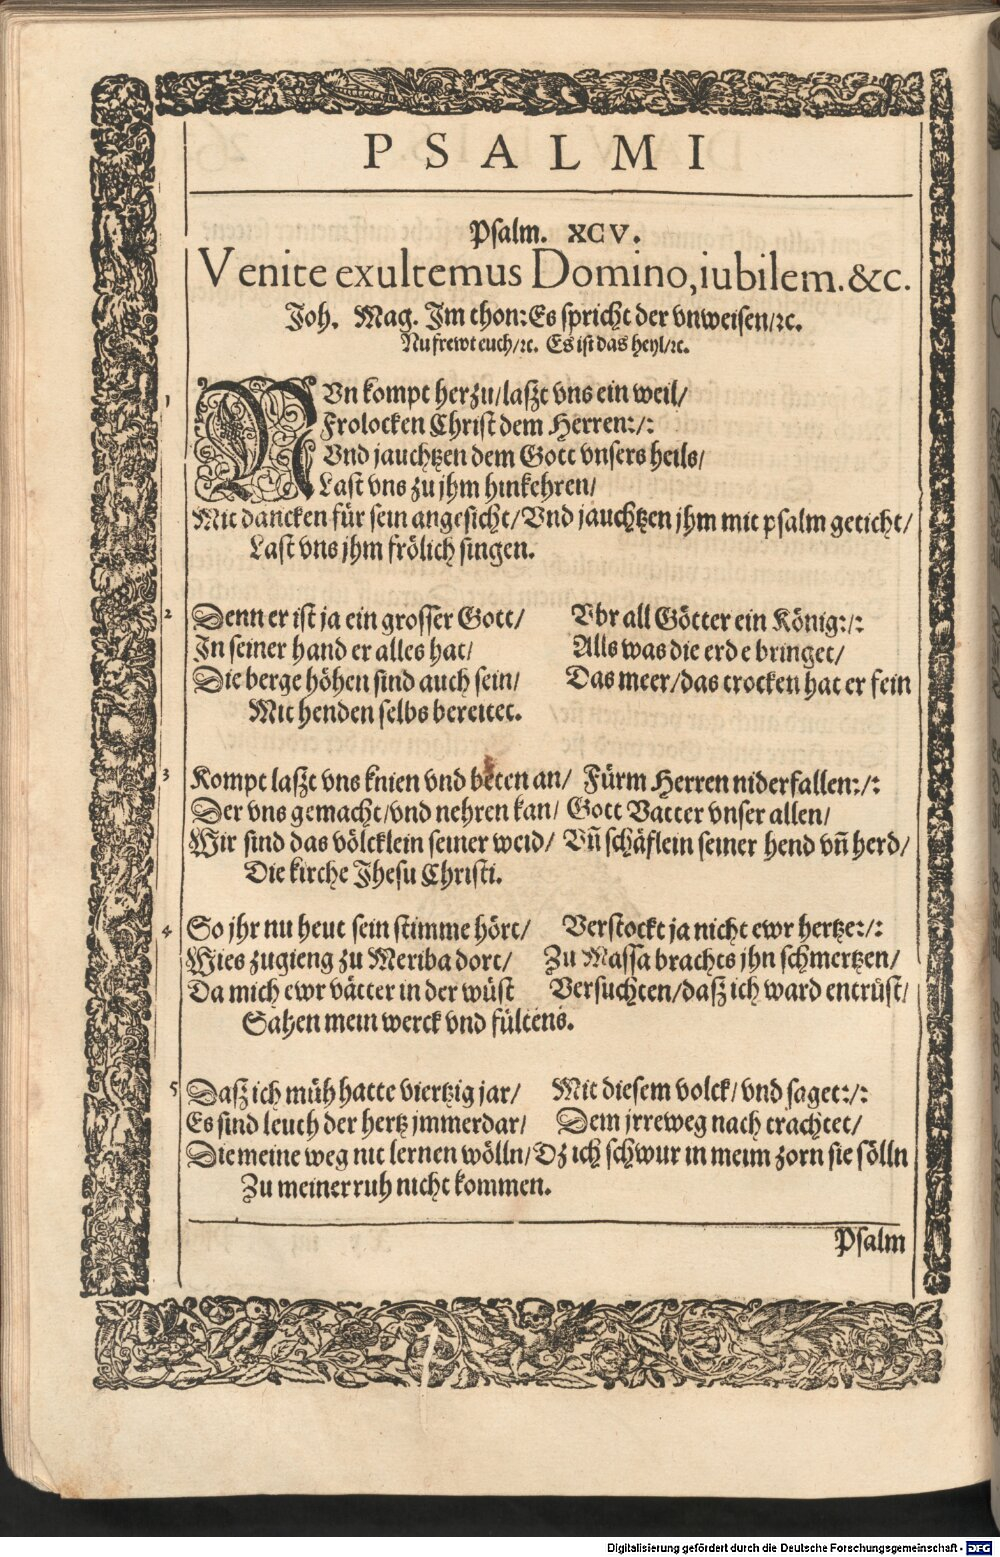 PSALMI
Psalm. XCV.
Venite exultemus Domino, iubilem. &c.
Joh. Mag. Jm thon: Es spricht der vnweisen/ꝛc.
Nu frewt euch/ꝛc. Es ist das heyl/ꝛc.
1 NVn kompt herzu/laszt vns ein weil/
Frolocken Christ dem Herren:/:
Vnd jauchtzen dem Gott vnsers heils/
Last vns zu jhm hinkehren/
Mit dancken für sein angesicht/Vnd jauchtzen jhm mit psalm geticht/
Last vns jhm frölich singen.
2 Denn er ist ja ein grosser Gott/ Vbr all Götter ein König:/:
In seiner hand er alles hat/ Alls was die erde bringet/
Die berge höhen sind auch sein/ Das meer/das trocken hat er fein
Mit henden selbs bereitet.
3 Kompt laszt vns knien vnd beten an/ Fürm Herren niderfallen:/:
Der vns gemacht/vnd nehren kan/ Gott Vatter vnser allen/
Wir sind das völcklein seiner weid/ Vñ schäflein seiner hend vñ herd/
Die kirche Jhesu Christi.
4 So jhr nu heut sein stimme hört/ Verstockt ja nicht ewr hertze:/:
Wies zugieng zu Meriba dort/ Zu Massa brachts jhn schmertzen/
Da mich ewr vätter in der wüst Versuchten/dasz ich ward entrüst/
Sahen mein werck vnd fültens.
5 Dasz ich müh hatte viertzig jar/ Mit diesem volck/vnd saget:/:
Es sind leuth der hertz jmmerdar/ Dem jrreweg nach trachtet/
Die meine weg nit lernen wölln/Dz ich schwur in meim zorn sie sölln
Zu meiner ruh nicht kommen.
Psalm
Digitalisierung gefördert durch die Deutsche Forschungsgemeinschaft - DFG